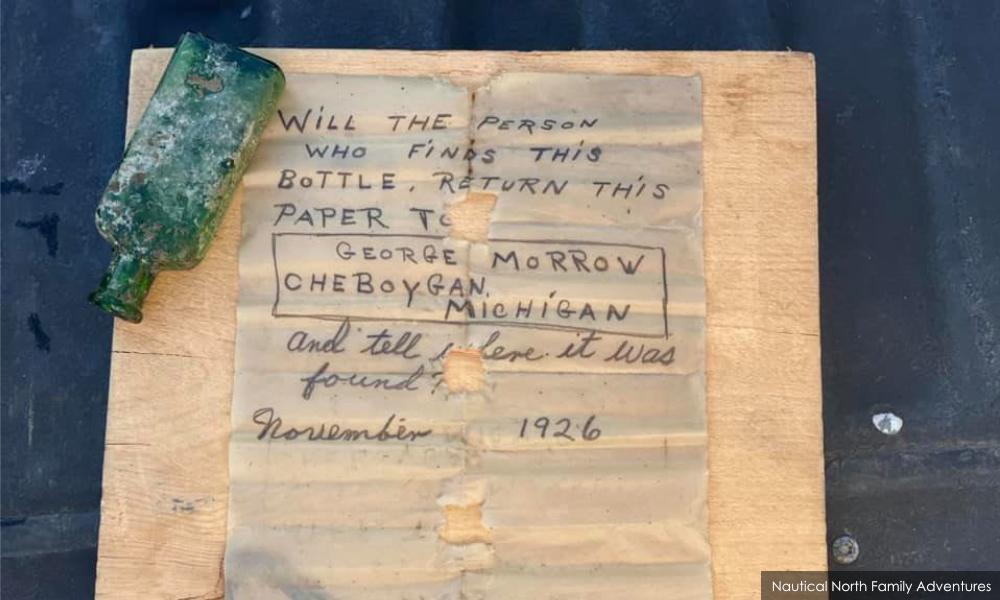 WILL THE PERSON
WHO FINDS THIS
BOTTLE, RETURN THIS
PAPER TO
GEORGE MORROW
CHEBOYGAN,
MICHIGAN
and tell where it was
found?
November 1926
Nautical North Family Adventures